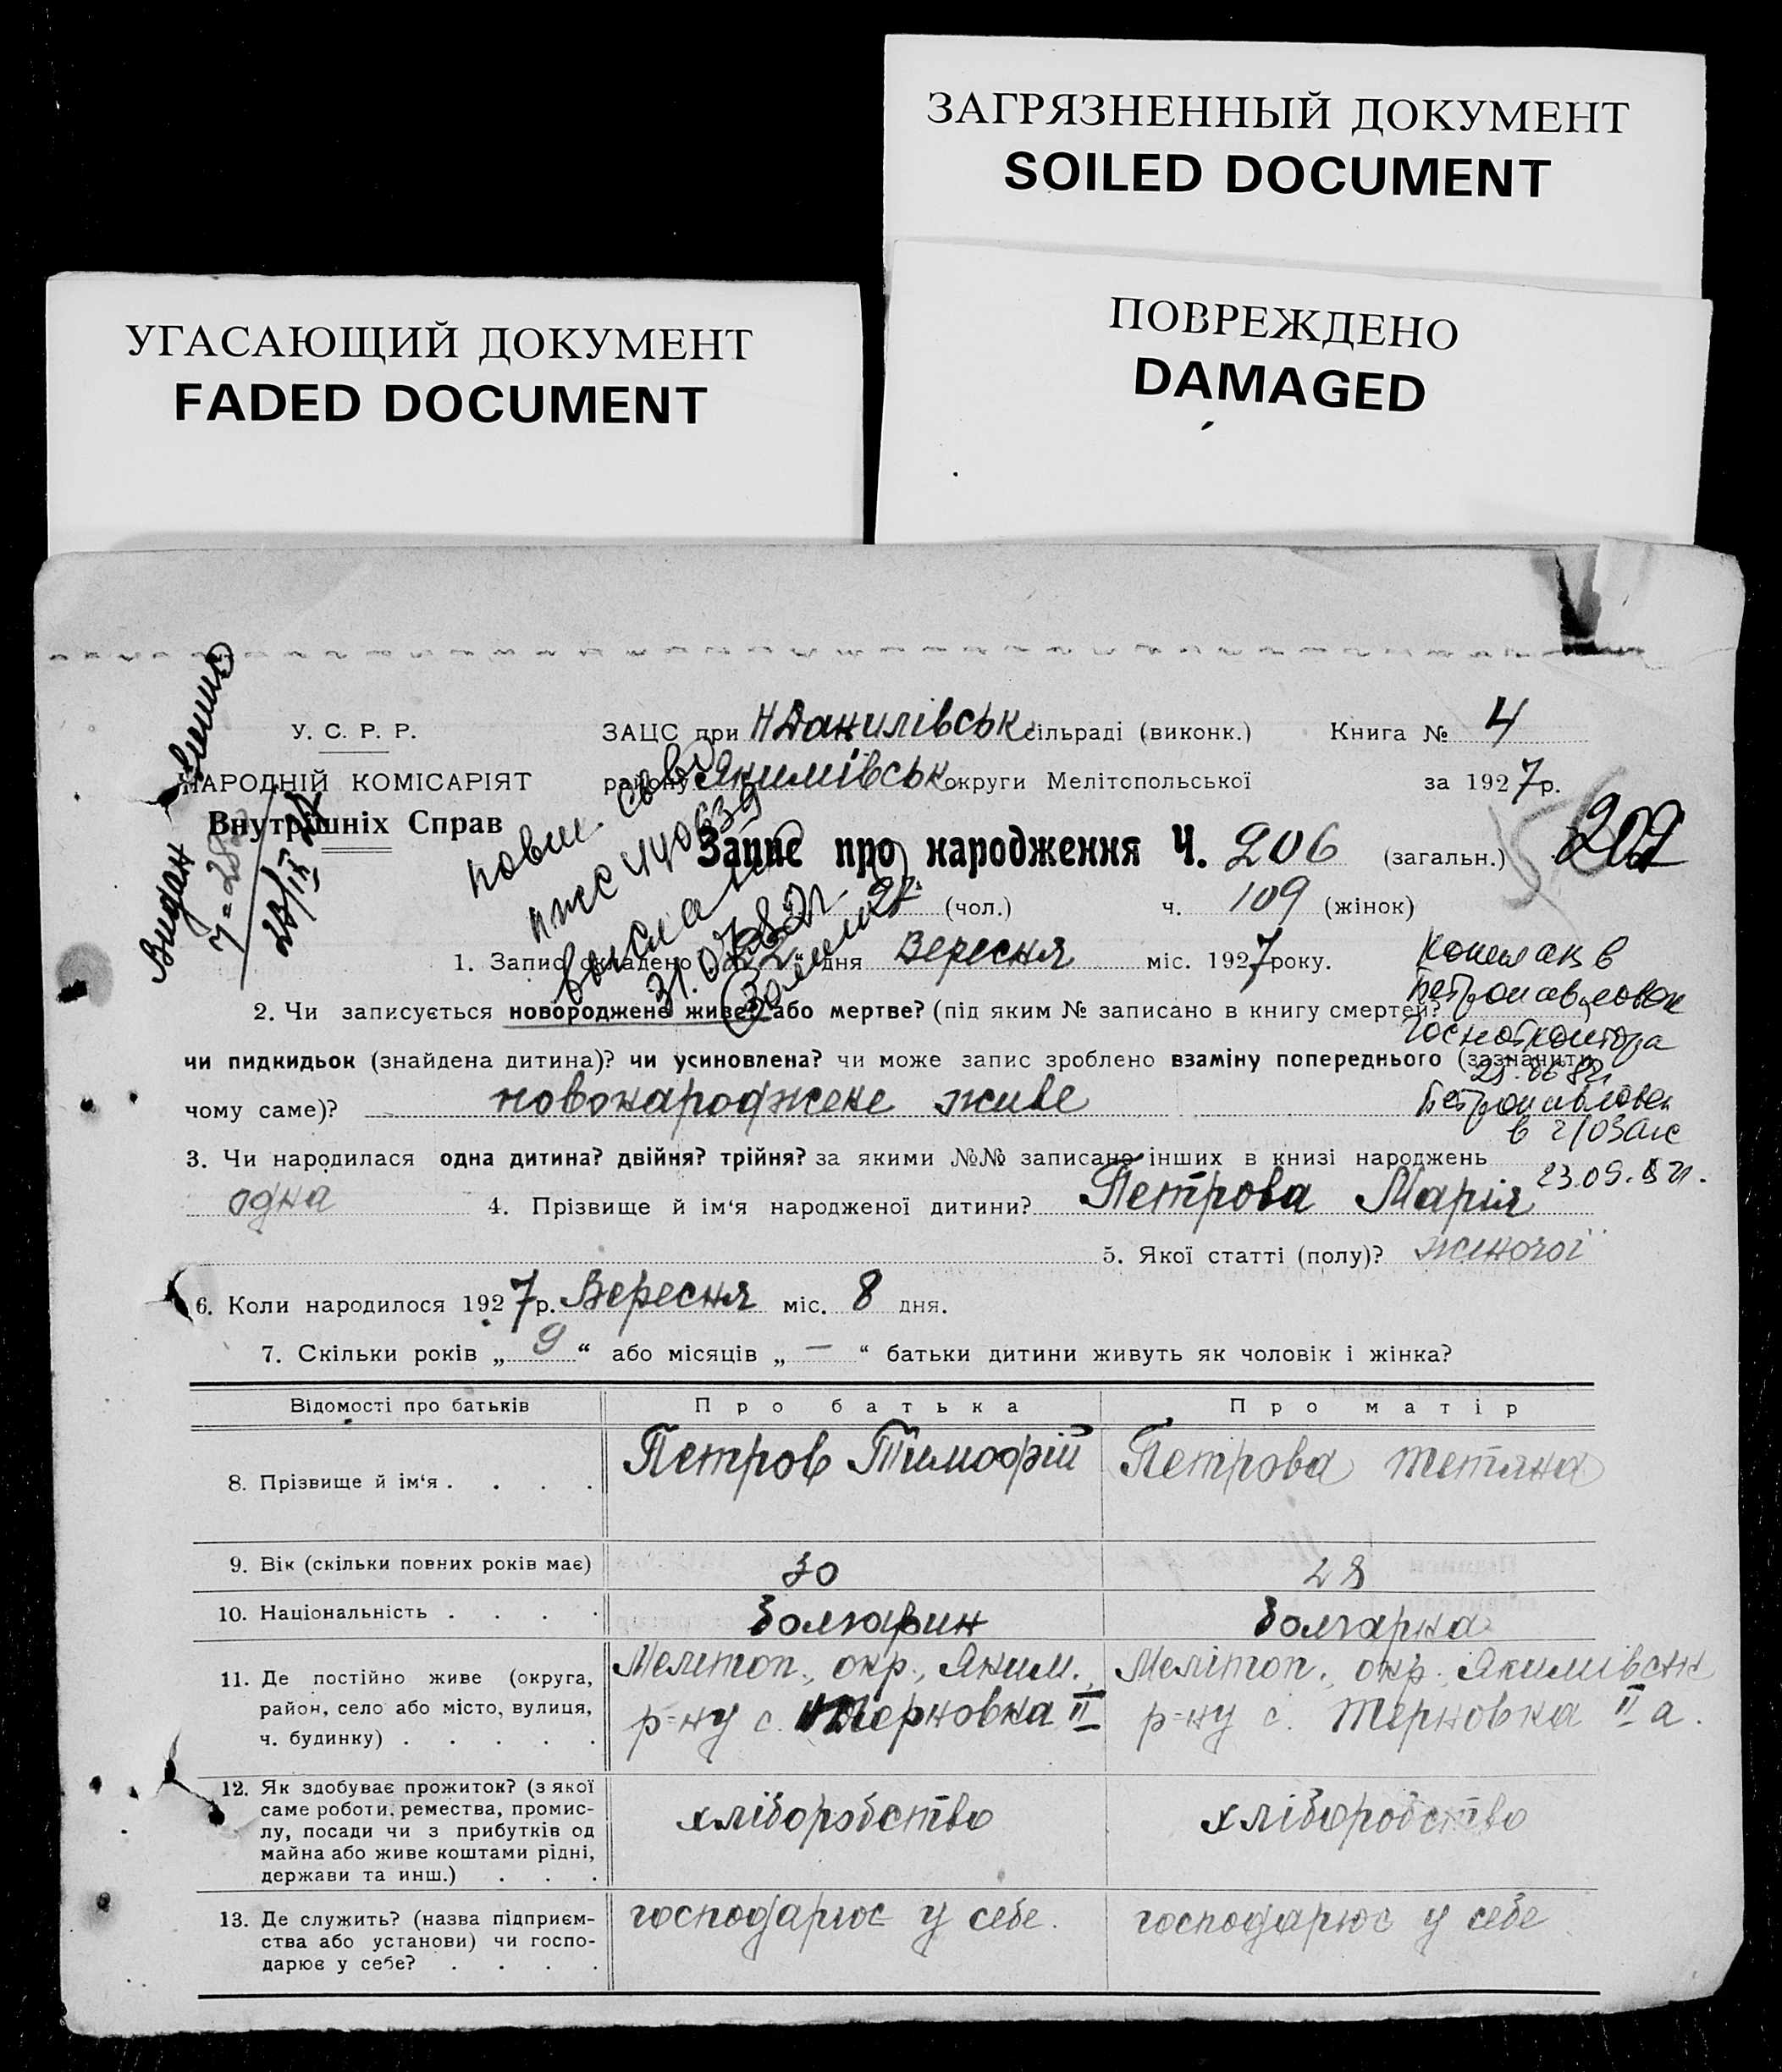 ЗАГРЯЗНЕННЫЙ ДОКУМЕНТ
SOILED DOCUMENT
ПОВРЕЖДЕНО
DAMAGED
УГАСАЮЩИЙ ДОКУМЕНТ
FADED DOCUMENT
У. С. Р. Р.
НАРОДНІЙ КОМІСАРІЯТ
Внутрішніх Справ
ЗАЦС при Н Данилівськ сільраді (виконк.) Книга № 4
району Якимівськ округи Мелітопольської за 1927 р.
Запис про народження Ч. 206 (загальн.) 202
(чол.) ч. 109 (жінок)
Видан
повт. св во
выслано
31.07.82г.
1. Запис складено „22" дня Вересня міс. 1927 року.
2. Чи записується новороджене живе? або мертве? (під яким № записано в книгу смертей?)
чи пидкидьок (знайдена дитина)? чи усиновлена? чи може запис зроблено взаміну попереднього (зазначити
чому саме)? новонароджене живе
Петропавловск
23.09.82г.
3. Чи народилася одна дитина? двійня? трійня? за якими №№ записано інших в книзі народжень
одна 4. Прізвище й ім'я народженої дитини? Петрова Марія
5. Якої статті (полу)? жіночої
6. Коли народилося 1927 р. Вересня міс. 8 дня.
7. Скільки років „9" або місяців „—" батьки дитини живуть як чоловік і жінка?
Відомості про батьків Про батька Про матір
8. Прізвище й ім'я . . . . Петров Тимофій Петрова Тетяна
9. Вік (скільки повних років має) 30 28
10. Національність . . . . Болгарин Болгарка
11. Де постійно живе (округа, Мелітоп., окр., Яким. Мелітоп. окр. Якимівськ
район, село або місто, вулиця, р-ну с. Терновка II р-ну с. Терновка II а.
ч. будинку) . . . . .
12. Як здобуває прожиток? (з якої
саме роботи, ремества, промис- хліборобство хліборобство
лу, посади чи з прибутків од
майна або живе коштами рідні,
держави та инш.) . . .
13. Де служить? (назва підприєм- господарює у себе. господарює у себе
ства або установи) чи госпо-
дарює у себе? . . . .